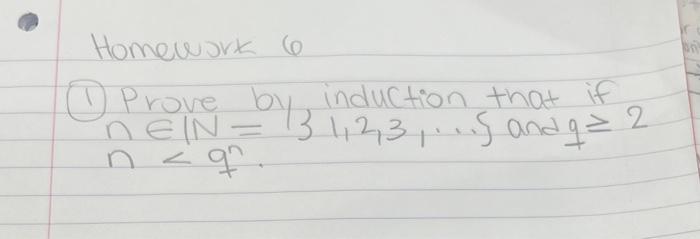 Homework 6
① Prove by induction that if
n ∈ ℕ = { 1, 2, 3, ... } and q ≥ 2
n < qⁿ.